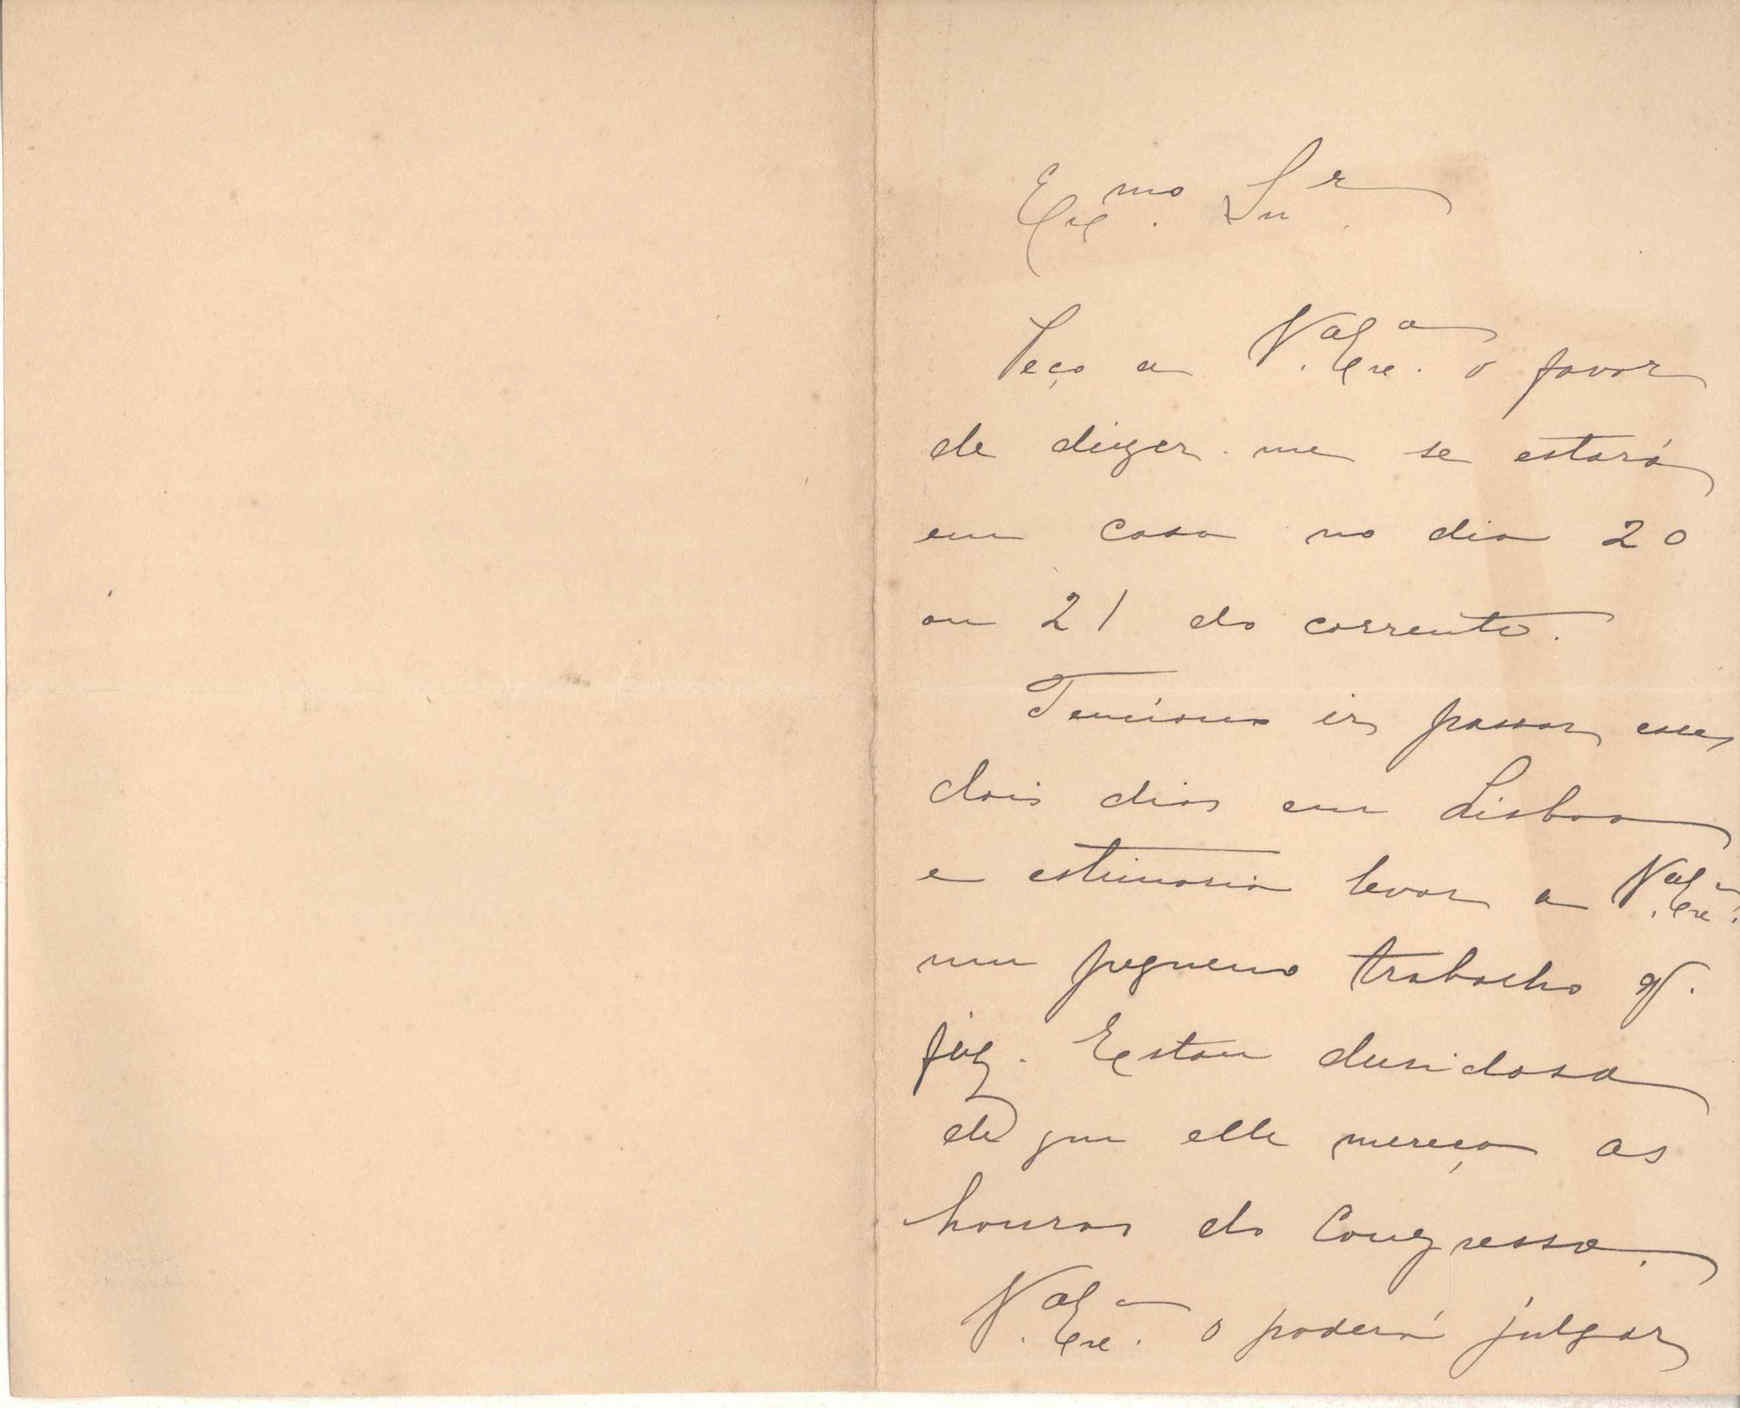 Exc.mo Snr.
Peço a V.a Exc.a o favor
de dizer-me se estará
em casa no dia 20
ou 21 do corrente.
Tenciono ir passar esses
dois dias em Lisboa
e estimaria levar a V.a Exc.a
um pequeno trabalho q.
fiz. Estou duvidosa
de que elle mereça as
honras do Congresso.
V.a Exc.a o poderá julgar